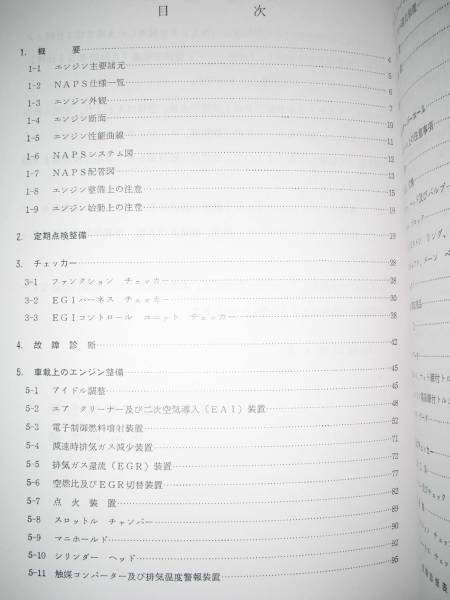 目 次
1. 概 要 4
1-1 エンジン主要諸元 4
1-2 NAPS仕様一覧 6
1-3 エンジン外観 7
1-4 エンジン断面 10
1-5 エンジン性能曲線 11
1-6 NAPSシステム図 12
1-7 NAPS配管図 13
1-8 エンジン整備上の注意 15
1-9 エンジン始動上の注意
2. 定期点検整備 19
3. チェッカー 28
3-1 ファンクション チェッカ 28
3-2 EGIハーネス チェッカ 30
3-3 EGIコントロール ユニット チェッカー 38
4. 故障診断 42
5. 車載上のエンジン整備 45
5-1 アイドル調整 45
5-2 エア クリーナー及び二次空気導入(EAI)装置 48
5-3 電子制御燃料噴射装置 52
5-4 減速時排気ガス減少装置 71
5-5 排気ガス還流(EGR)装置 72
5-6 空燃比及びEGR切替装置 77
5-7 点火装置 82
5-8 スロットル チャンバー 87
5-9 マニホールド 90
5-10 シリンダー ヘッド 92
5-11 触媒コンバーター及び排気温度警報装置 95